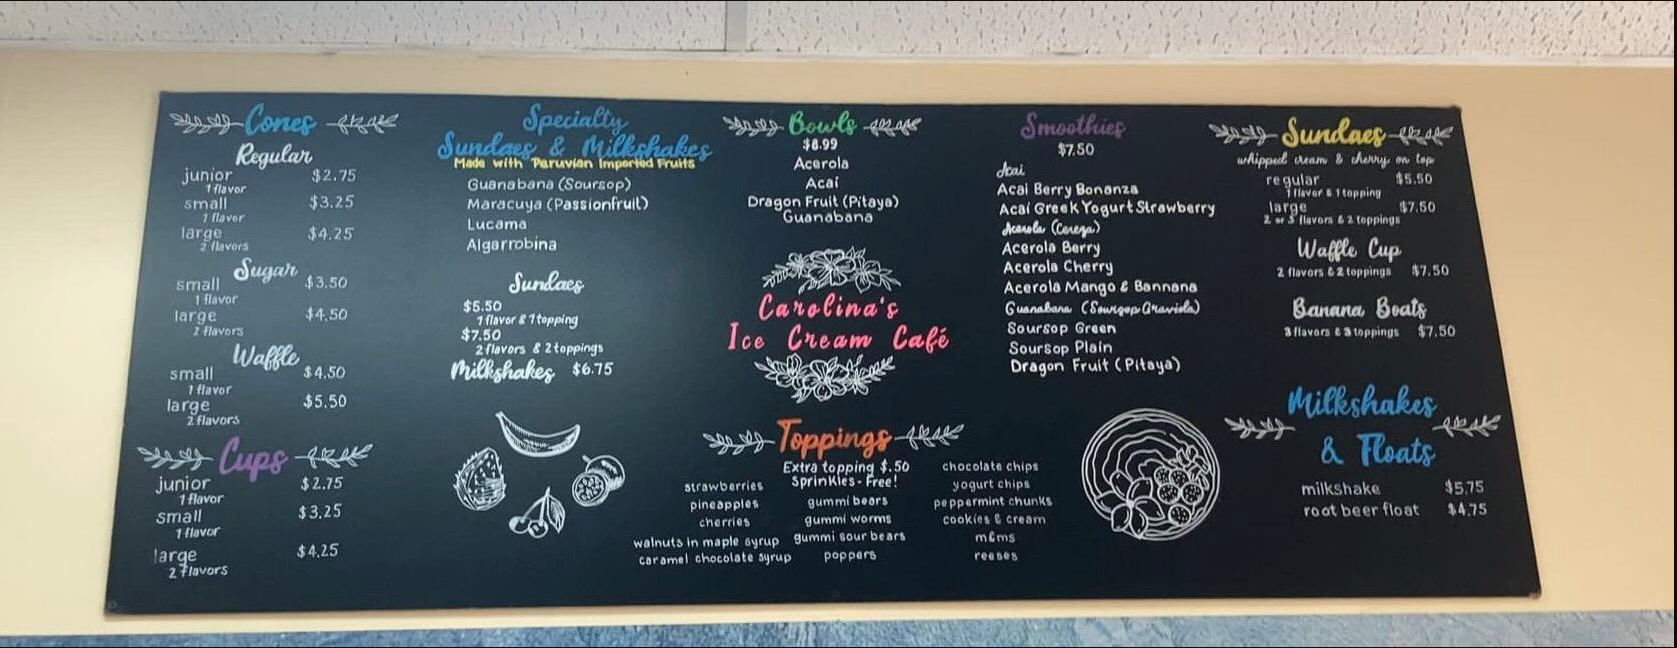 Cones
Regular
junior $2.75
1 flavor
small $3.25
1 flavor
large $4.25
2 flavors
Sugar
small $3.50
1 flavor
large $4.50
2 flavors
Waffle
small $4.50
1 flavor
large $5.50
2 flavors
Cups
junior $2.75
1 flavor
small $3.25
1 flavor
large $4.25
2 flavors
Specialty
Sundaes & Milkshakes
Made with Peruvian Imported Fruits
Guanabana (Soursop)
Maracuya (Passionfruit)
Lucama
Algarrobina
Sundaes
$5.50
1 flavor & 1 topping
$7.50
2 flavors & 2 toppings
Milkshakes $6.75
Bowls
$8.99
Acerola
Acai
Dragon Fruit (Pitaya)
Guanabana
Carolina's
Ice Cream Café
Toppings
Extra topping $.50
Sprinkles - Free!
strawberries
pineapples
cherries
walnuts in maple syrup
caramel chocolate syrup
gummi bears
gummi worms
gummi sour bears
poppers
chocolate chips
yogurt chips
peppermint chunks
cookies & cream
m&ms
reeses
Smoothies
$7.50
Acai
Acai Berry Bonanza
Acai Greek Yogurt Strawberry
Acerola (Cereza)
Acerola Berry
Acerola Cherry
Acerola Mango & Bannana
Guanabana (Soursop Graviola)
Soursop Green
Soursop Plain
Dragon Fruit (Pitaya)
Sundaes
whipped cream & cherry on top
regular $5.50
1 flavor & 1 topping
large $7.50
2 or 3 flavors & 2 toppings
Waffle Cup
2 flavors & 2 toppings $7.50
Banana Boats
3 flavors & 3 toppings $7.50
Milkshakes
& Floats
milkshake $5.75
root beer float $4.75